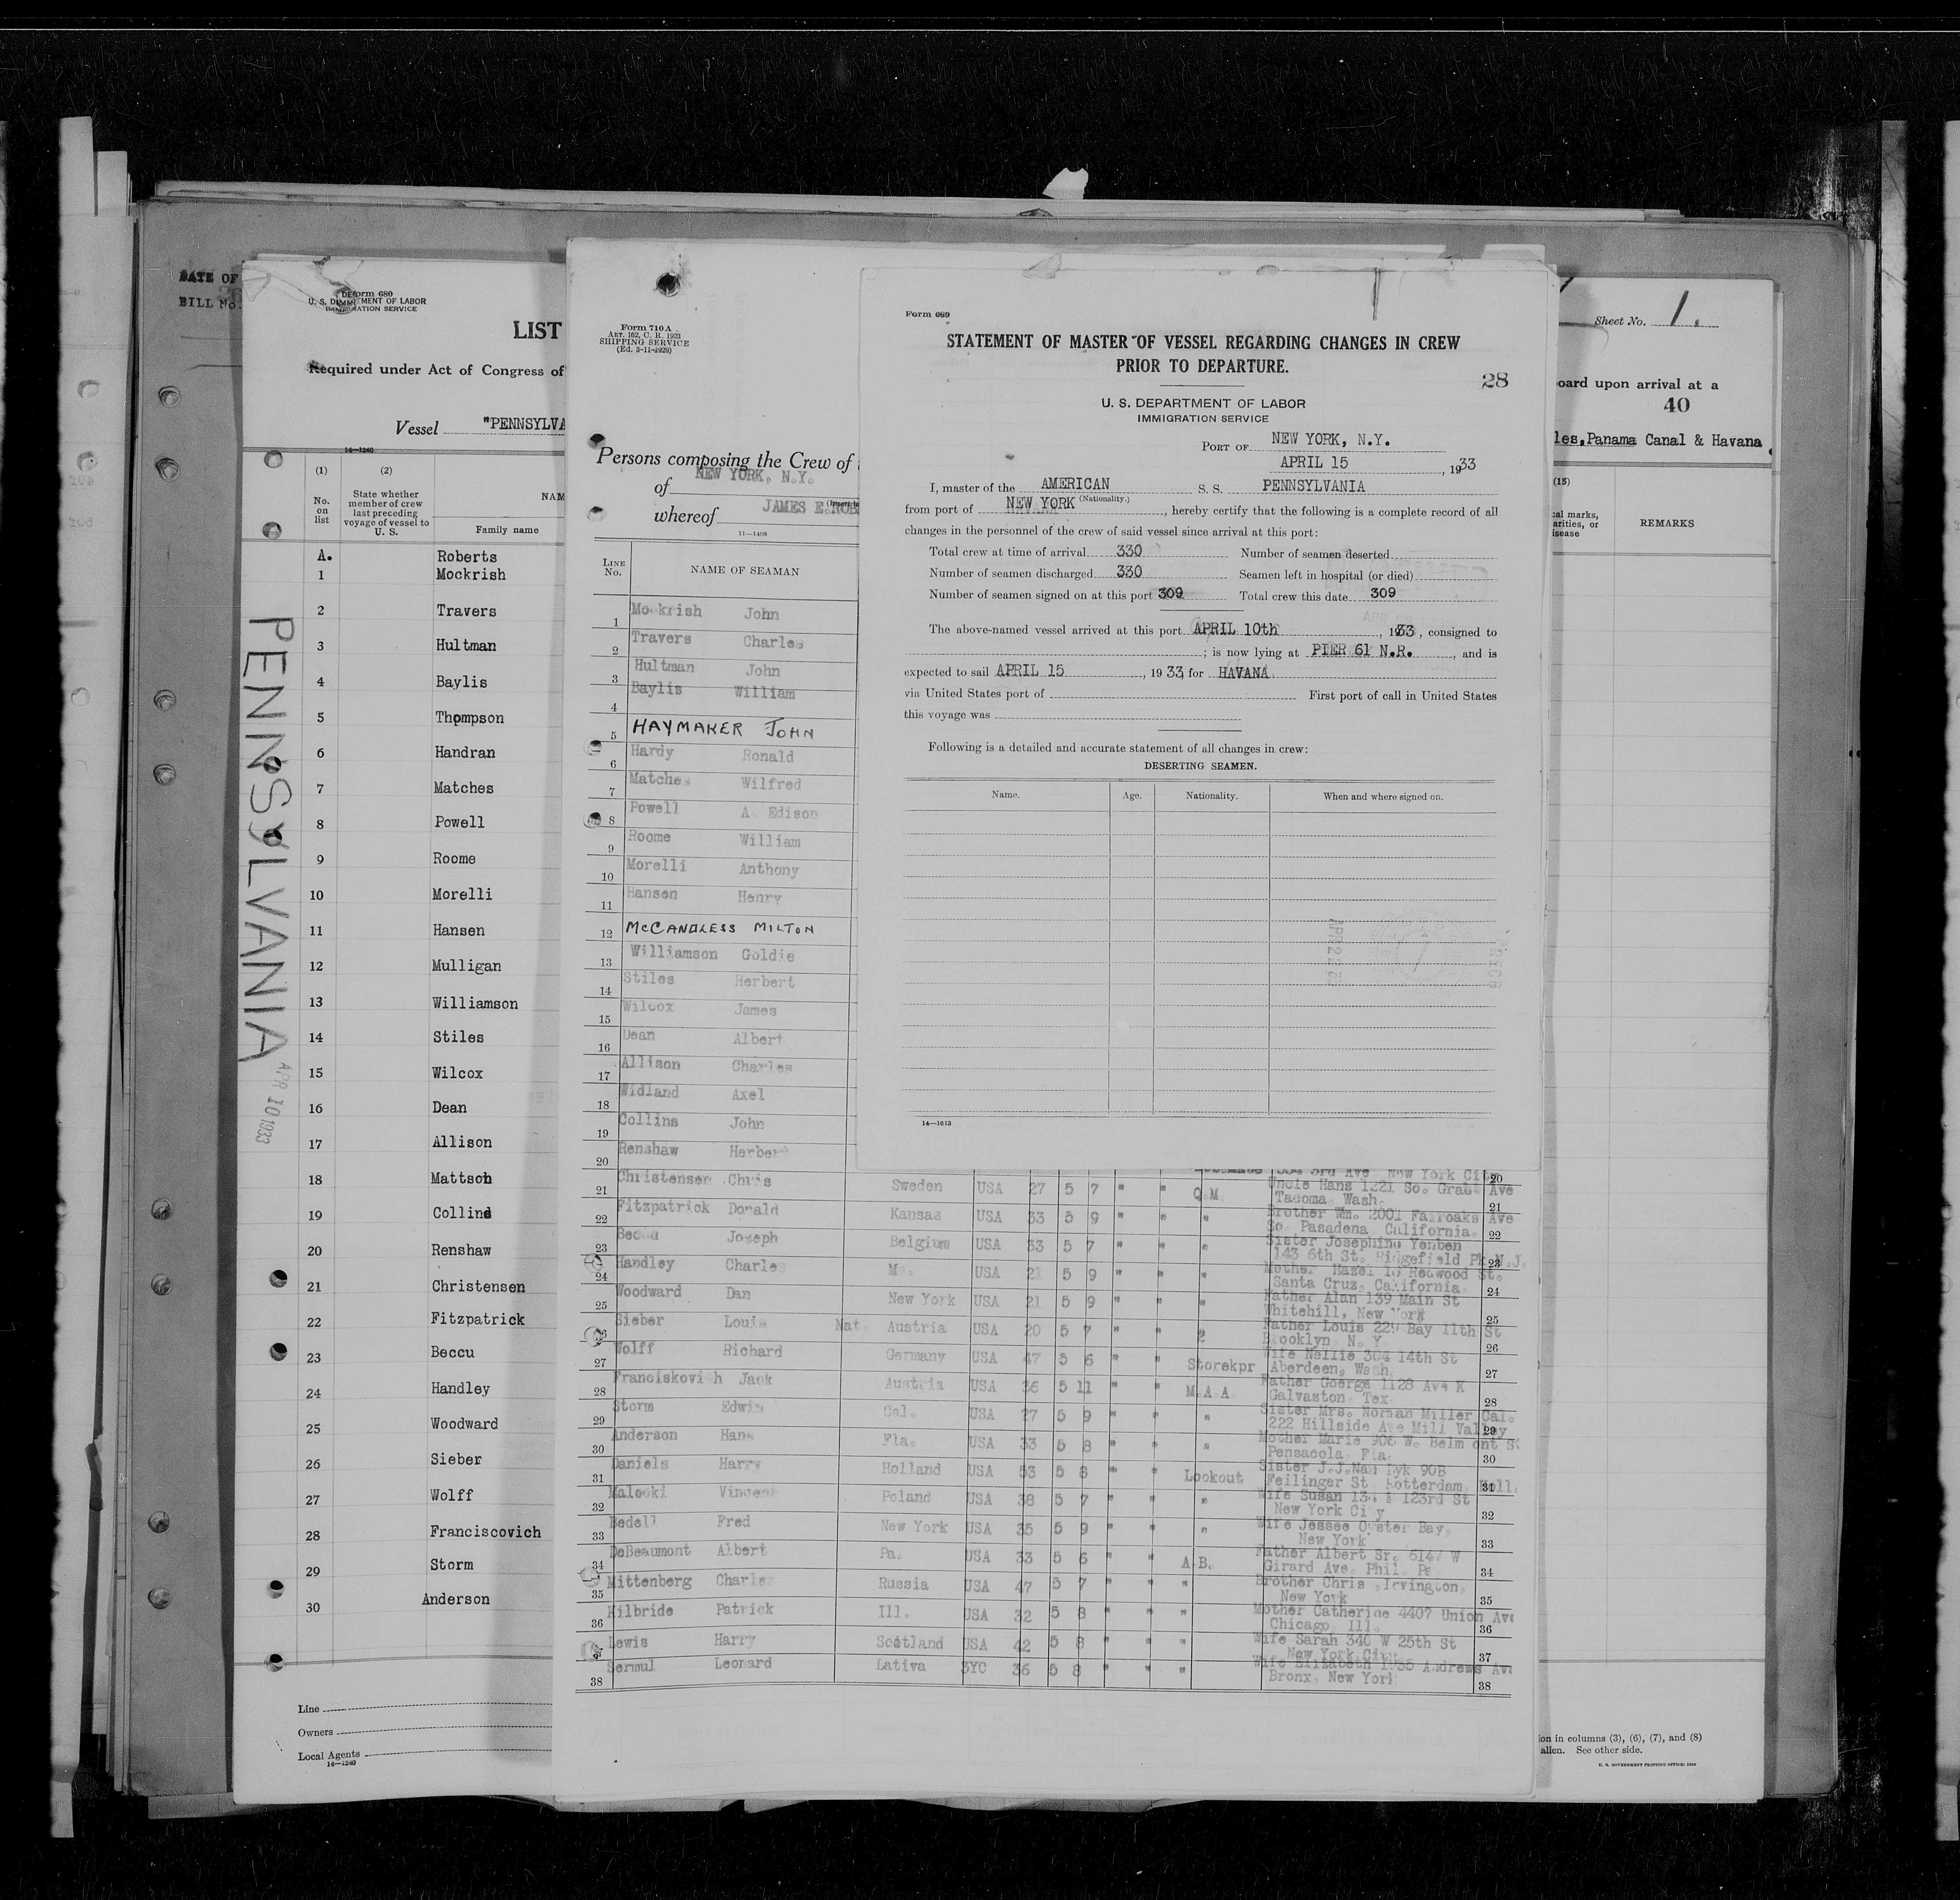 DATE OF
BILL No.
Form 680
U. S. DEPARTMENT OF LABOR
IMMIGRATION SERVICE
LIST
Required under Act of Congress of
Vessel "PENNSYLVA
14—1240
(1) (2)
No. on list
State whether member of crew last preceding voyage of vessel to U. S.
NAM
Family name
A. Roberts
1 Mockrish
2 Travers
3 Hultman
4 Baylis
5 Thompson
6 Handran
7 Matches
8 Powell
9 Roome
10 Morelli
11 Hansen
12 Mulligan
13 Williamson
14 Stiles
15 Wilcox
16 Dean
17 Allison
18 Mattson
19 Collins
20 Renshaw
21 Christensen
22 Fitzpatrick
23 Beccu
24 Handley
25 Woodward
26 Sieber
27 Wolff
28 Franciscovich
29 Storm
30 Anderson
Line
Owners
Local Agents
14—1240
PENNSYLVANIA
APR 10 1933
Form 710 A
ART. 162, C. R. 1923
SHIPPING SERVICE
(Ed. 3-11-1929)
Persons composing the Crew of
of NEW YORK, N.Y.
whereof JAMES E. ROB
11—1408
LINE No. NAME OF SEAMAN
1 Mockrish John
2 Travers Charles
3 Hultman John
4 Baylis William
5 HAYMAKER JOHN
6 Hardy Ronald
7 Matches Wilfred
8 Powell A. Edison
9 Roome William
10 Morelli Anthony
11 Hansen Henry
12 McCANDLESS MILTON
13 Williamson Goldie
14 Stiles Herbert
15 Wilcox James
16 Dean Albert
17 Allison Charles
18 Widland Axel
19 Collins John
20 Renshaw Herbert 334 3rd Ave New York City 20
21 Christensen Chris Sweden USA 27 5 7 " " Q.M. Uncle Hans 1221 So. Grant Ave Tacoma Wash. 21
22 Fitzpatrick Donald Kansas USA 33 5 9 " " " Brother Wm. 2001 Fairoaks Ave So. Pasadena California 22
23 Beccu Joseph Belgium USA 33 5 7 " " " Sister Josephine Yenben 143 6th St. Ridgefield Pk N.J. 23
24 Handley Charles USA 21 5 9 " " " Mother Hazel 18 Redwood St. Santa Cruz, California 24
25 Woodward Dan New York USA 21 5 9 " " " Father Alan 139 Main St Whitehill, New York 25
26 Sieber Louis Nat Austria USA 20 5 7 " " Father Louis 229 Bay 11th St Brooklyn N. Y. 26
27 Wolff Richard Germany USA 47 5 6 " " Storekpr Wife Nellie 304 14th St Aberdeen, Wash. 27
28 Franciskovich Jack Austria USA 36 5 11 " " M.A.A. Father Goerge 1128 Ave K Galvaston Tex. 28
29 Storm Edwin Cal. USA 27 5 9 " " " Sister Mrs. Norman Miller Cal. 222 Hillside Ave Mill Valley 29
30 Anderson Hans Fla. USA 33 5 8 " " " Mother Marie 906 W. Belmont St Pensacola Fla. 30
31 Daniels Harry Holland USA 53 5 8 " " Lookout Sister J.J. Feilinger St Rotterdam Holl. 31
32 Malecki Vincent Poland USA 38 5 7 " " " Wife Susan 123rd St New York City 32
33 Bedell Fred New York USA 35 5 9 " " " Wife Jessee Oyster Bay, New York 33
34 DeBeaumont Albert Pa. USA 33 5 6 " " A.B. Father Albert Sr. 6147 W Girard Ave. Phil. Pa 34
35 Mittenberg Charls Russia USA 47 5 7 " " " Brother Chris Irvington, New York 35
36 Kilbride Patrick Ill. USA 32 5 8 " " " Mother Catherine 4407 Union Ave Chicago, Ill. 36
37 Lewis Harry Scotland USA 42 5 8 " " " Wife Sarah 340 W 25th St New York City 37
38 Sermul Leonard Lativa SYC 36 5 8 " " " Wife Elizabeth Andrews Ave Bronx, New York 38
Form 689
STATEMENT OF MASTER OF VESSEL REGARDING CHANGES IN CREW
PRIOR TO DEPARTURE.
28
U. S. DEPARTMENT OF LABOR
IMMIGRATION SERVICE
PORT OF NEW YORK, N.Y.
APRIL 15, 1933
I, master of the AMERICAN S. S. PENNSYLVANIA
(Nationality.)
from port of NEW YORK, hereby certify that the following is a complete record of all
changes in the personnel of the crew of said vessel since arrival at this port:
Total crew at time of arrival 330 Number of seamen deserted
Number of seamen discharged 330 Seamen left in hospital (or died)
Number of seamen signed on at this port 309 Total crew this date 309
The above-named vessel arrived at this port APRIL 10th, 1933, consigned to
; is now lying at PIER 61 N.R., and is
expected to sail APRIL 15, 1933, for HAVANA
via United States port of First port of call in United States
this voyage was
Following is a detailed and accurate statement of all changes in crew:
DESERTING SEAMEN.
Name. Age. Nationality. When and where signed on.
14—1613
Sheet No. 1.
oard upon arrival at a
40
les, Panama Canal & Havana
(15)
cal marks,
arities, or
isease
REMARKS
ion in columns (3), (6), (7), and (8)
alien. See other side.
U. S. GOVERNMENT PRINTING OFFICE